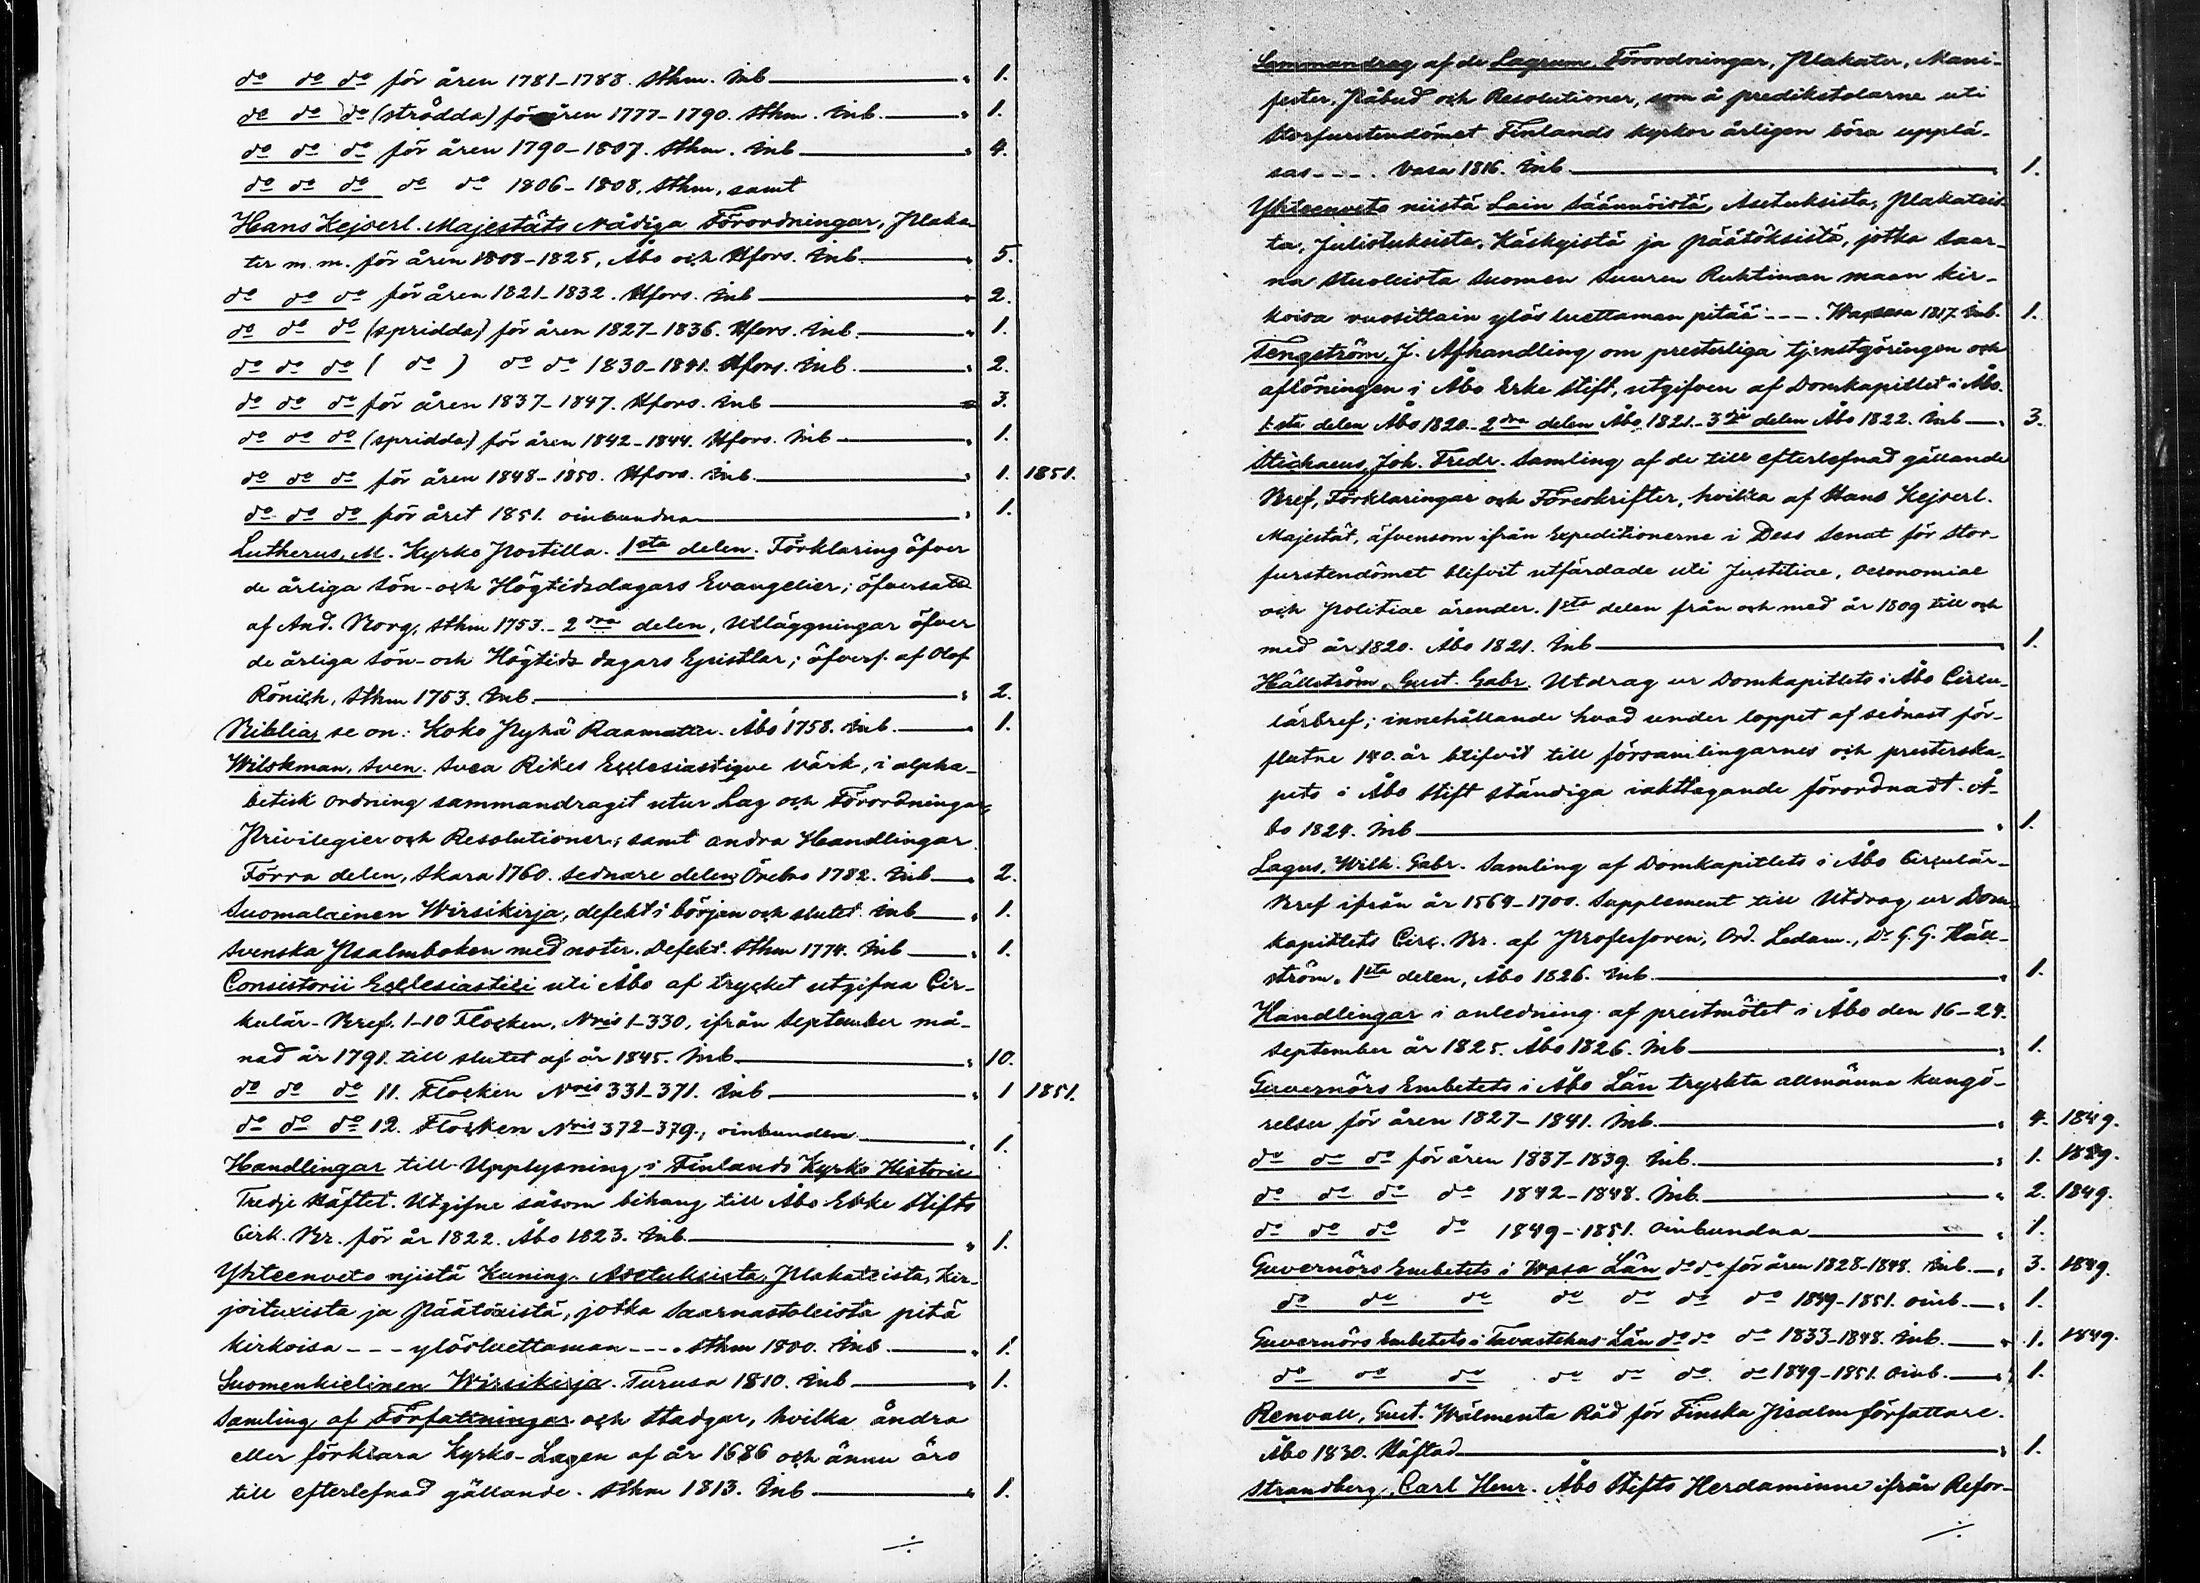 do do do för åren 1781-1788. Sthm. Inb " 1.
do do do (strödda) för åren 1777-1790. Sthm. Inb. " 1.
do do do för åren 1790-1807. Sthm. Inb " 4.
do do do do do 1806-1808. Sthm, samt
Hans Kejserl. Majestäts Nådiga Förordningar, Plaka-
ter m.m. för åren 1808-1825, Åbo och Hfors. Inb. " 5.
do do do för åren 1821-1832. Hfors. Inb " 2.
do do do (spridda) för åren 1827-1836. Hfors. Inb. " 1.
do do do ( do ) do do 1830-1841. Hfors. Inb. " 2.
do do do för åren 1837-1847. Hfors. Inb " 3.
do do do (spridda) för åren 1842-1844. Hfors. Inb " 1.
do do do för åren 1848-1850. Hfors. Inb. " 1. 1851.
do do do för året 1851. oinbundna " 1.
Lutherus, M. Kyrko Postilla. 1sta delen. Förklaring öfver
de årliga Sön- och Högtidsdagars Evangelier; öfversatt
af And. Borg, Sthm 1753. - 2dra delen, Utläggningar öfver
de årliga Sön- och Högtids dagars Epistlar; öfvers. af Olof
Rönigh, Sthm 1753. Inb. " 2.
Biblia, se on: Koko Pyhä Raamattu. Åbo 1758. Inb. " 1.
Wilskman, Sven. Svea Rikes Ecclesiastique Värk, i alpha-
betisk ordning sammandragit utur Lag och Förordningar,
Privilegier och Resolutioner; samt andra Handlingar
Förra delen, Skara 1760. Sednare delen, Örebro 1782. Inb " 2.
Suomalainen Wirsikirja, defekt i början och slutet. Inb " 1.
Svenska Psalmboken med noter. Defekt. Sthm 1774. Inb " 1.
Consistorii Ecclesiastici uti Åbo af trycket utgifna Cir-
kulär-Bref. 1-10 Flocken, Nris 1-330, ifrån September må-
nad år 1791. till slutet af år 1845. Inb " 10.
do do do 11. Flocken Nris 331-371. Inb " 1 1851.
do do do 12. Flocken Nris 372-379., oinbunden " 1.
Handlingar till Upplysning i Finlands Kyrko Historie
Tredje Häftet. Utgifne såsom bihang till Åbo Erke Stifts
Cirk. Br. för år 1822. Åbo 1823. Inb. " 1.
Yhteenveto nijstä Kuning. Asetuksista, Plakateista, Kir-
joituxista ja Päätöxistä, jotka Saarnastoleista pitä
kirkoisa - - - ylösluettaman - - -. Sthm 1800. Inb. " 1.
Suomenkielinen Wirsikirja. Turusa 1810. Inb " 1.
Samling af Författningar och Stadgar, hvilka ändra
eller förklara Kyrko-Lagen af år 1686 och ännu äro
till efterlefnad gällande. Sthm 1813. Inb " 1.
./.
Sammandrag af de Lagrum, Förordningar, Plakater, Mani-
fester, Påbud och Resolutioner, som å predikstolarne uti
Storfurstendömet Finlands kyrkor årligen böra upplä-
sas - - -. Vasa 1816. Inb. " 1.
Yhteenveto niistä Lain Säännöistä, Asetuksista, Plakateis-
ta, Julistuksista, Käskyistä ja Päätöksistä, jotka Saar-
na Stuoleista Suomen Suuren Ruhtinan maan kir-
koisa vuosittain ylös luettaman pitää - - -. Waasasa 1817. Inb. 1.
Tengström, J. Afhandling om presterliga tjenstgöringen och
aflöningen i Åbo Erke Stift, utgifven af Domkapitlet i Åbo.
1:sta delen Åbo 1820. - 2dra delen Åbo 1821. - 3dje delen Åbo 1822. Inb " 3.
Stichaeus, Joh. Fredr. Samling af de till efterlefnad gällande
Bref, Förklaringar och Föreskrifter, hvilka af Hans Kejserl.
Majestät, äfvensom ifrån Expeditionerne i Dess Senat för Stor-
furstendömet blifvit utfärdade uti Justitiae, Oeconomiae
och Politiae ärender. 1sta delen från och med år 1809 till och
med år 1820. Åbo 1821. Inb " 1.
Hällström, Gust. Gabr. Utdrag ur Domkapitlets i Åbo Circu-
lärbref; innehållande hvad under loppet af sednast för-
flutne 180. år blifvit till församlingarnes och presterska-
pets i Åbo Stift ständiga iakttagande förordnadt. Å-
bo 1824. Inb " 1.
Lagus, Wilh. Gabr. Samling af Domkapitlets i Åbo Circulär-
Bref ifrån år 1564-1700. Supplement till Utdrag ur Dom-
kapitlets Circ. Br. af Professoren, Ord. Ledam., Dr G. G. Häll-
ström. 1sta delen, Åbo 1826. Inb. " 1.
Handlingar i anledning af prestmötet i Åbo den 16-24.
September år 1825. Åbo 1826. Inb " 1.
Guvernörs Embetets i Åbo Län tryckta allmänna kungö-
relser för åren 1827-1841. Inb. " 4. 1849.
do do do för åren 1837-1839. Inb. " 1. 1849.
do do do do 1842-1848. Inb. " 2. 1849.
do do do do 1849-1851. Oinbundna " 1.
Guvernörs Embetets i Wasa Län do do för åren 1828-1848. Inb. " 3. 1849.
do do do do do do do 1849-1851. oinb. " 1.
Guvernörs Embetets i Tavastehus Län do do do 1833-1848. Inb. " 1. 1849.
do do do do do do do 1849-1851. Oinb. " 1.
Renvall, Gust. Wälmenta Råd för Finska Psalmförfattare.
Åbo 1830. Häftad " 1.
Strandberg, Carl Henr. Åbo Stifts Herdaminne ifrån Refor-
./.